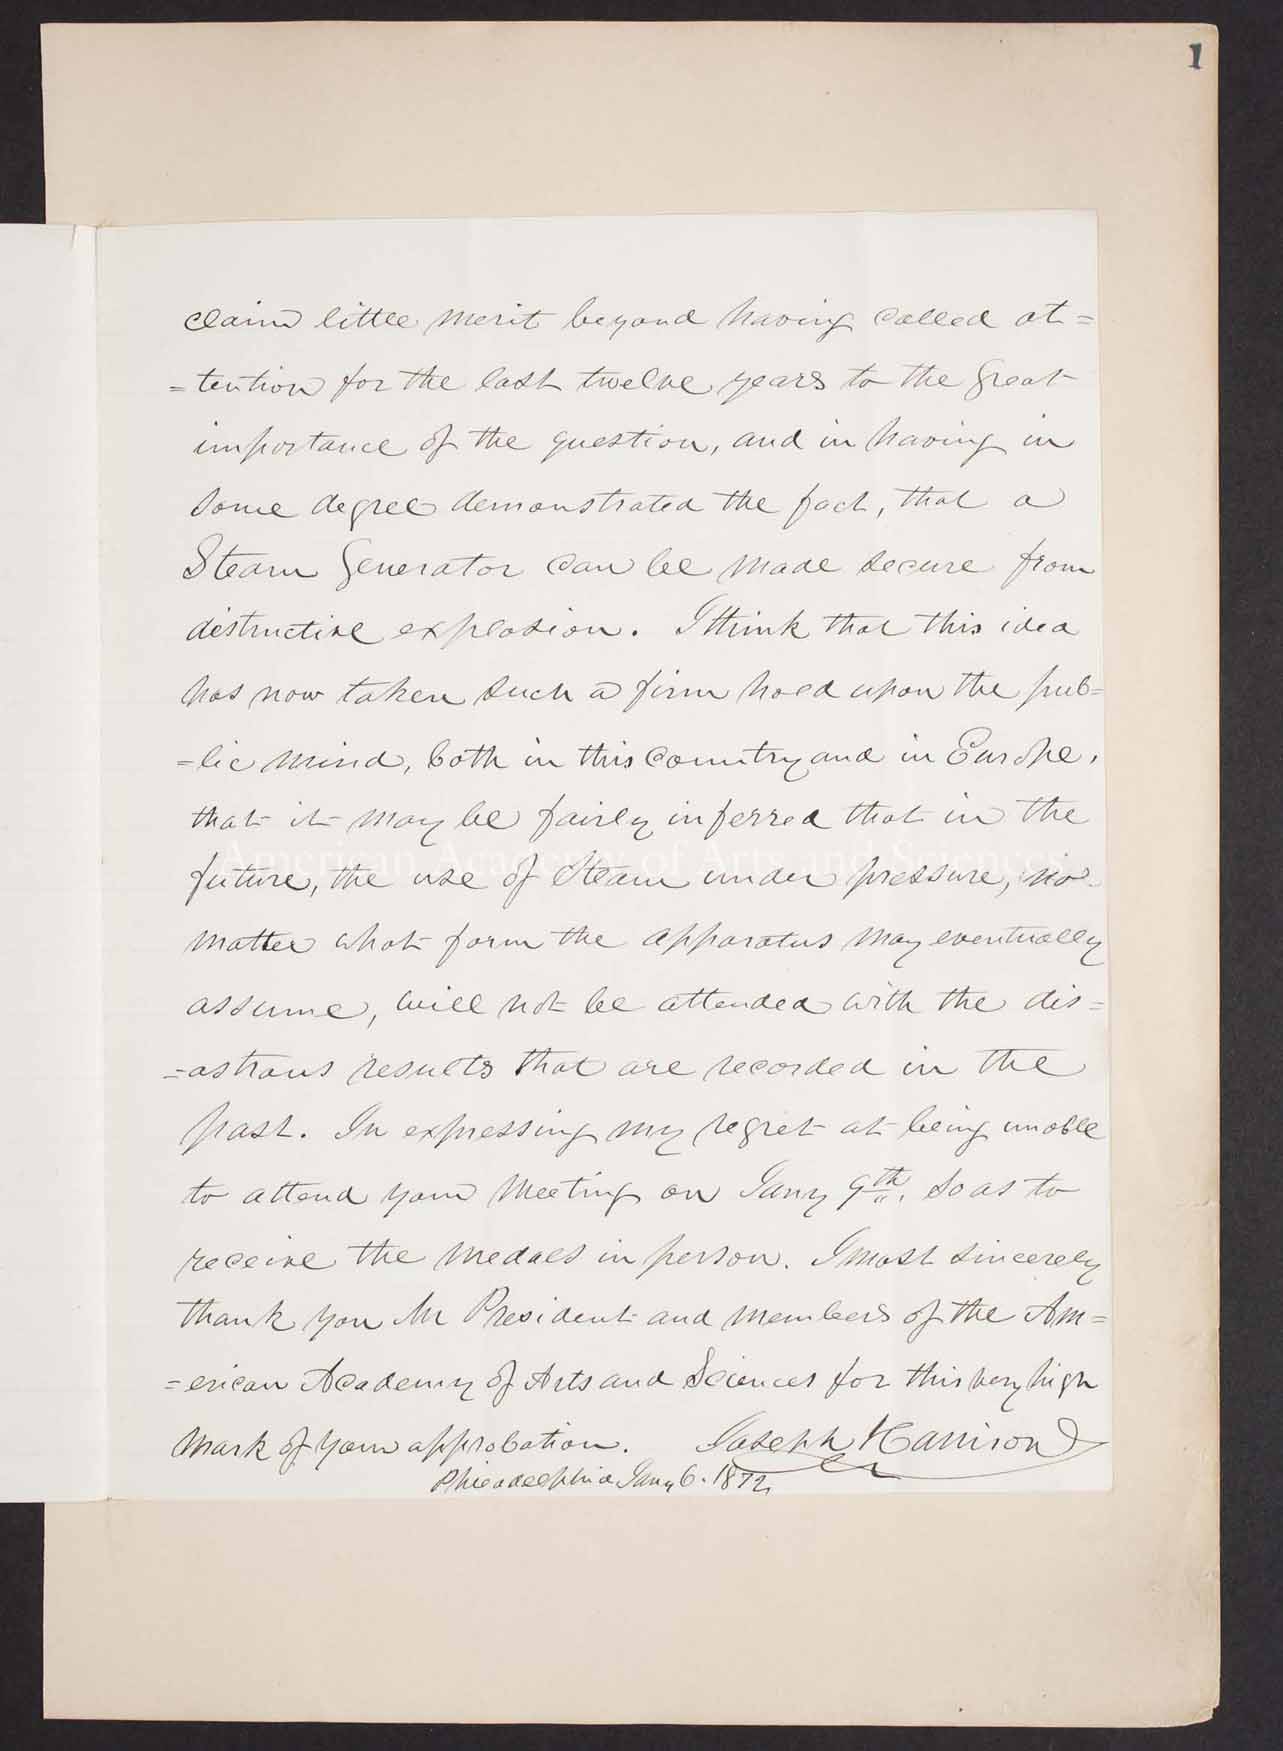 1
claim little merit beyond having called at=
=tention for the last twelve years to the great
importance of the question, and in having in
some degree demonstrated the fact, that a
Steam Generator can be made secure from
distructive explosion. I think that this idea
has now taken such a firm hold upon the pub=
=lic mind, both in this Country and in Europe,
that it may be fairly inferred that in the
American Academy of Arts and Sciences
future, the use of Steam under pressure, no
matter what form the apparatus may eventually
assume, will not be attended with the dis=
=astrous results that are recorded in the
past. In expressing my regret at being unable
to attend your Meeting on Jany 9th. so as to
receive the Medals in person. I most sincerely
thank you Mr President and Members of the Am=
=erican Academy of Arts and Sciences for this very high
Mark of your approbation. Joseph Harrison Jr
Philadelphia Jany 6. 1872.